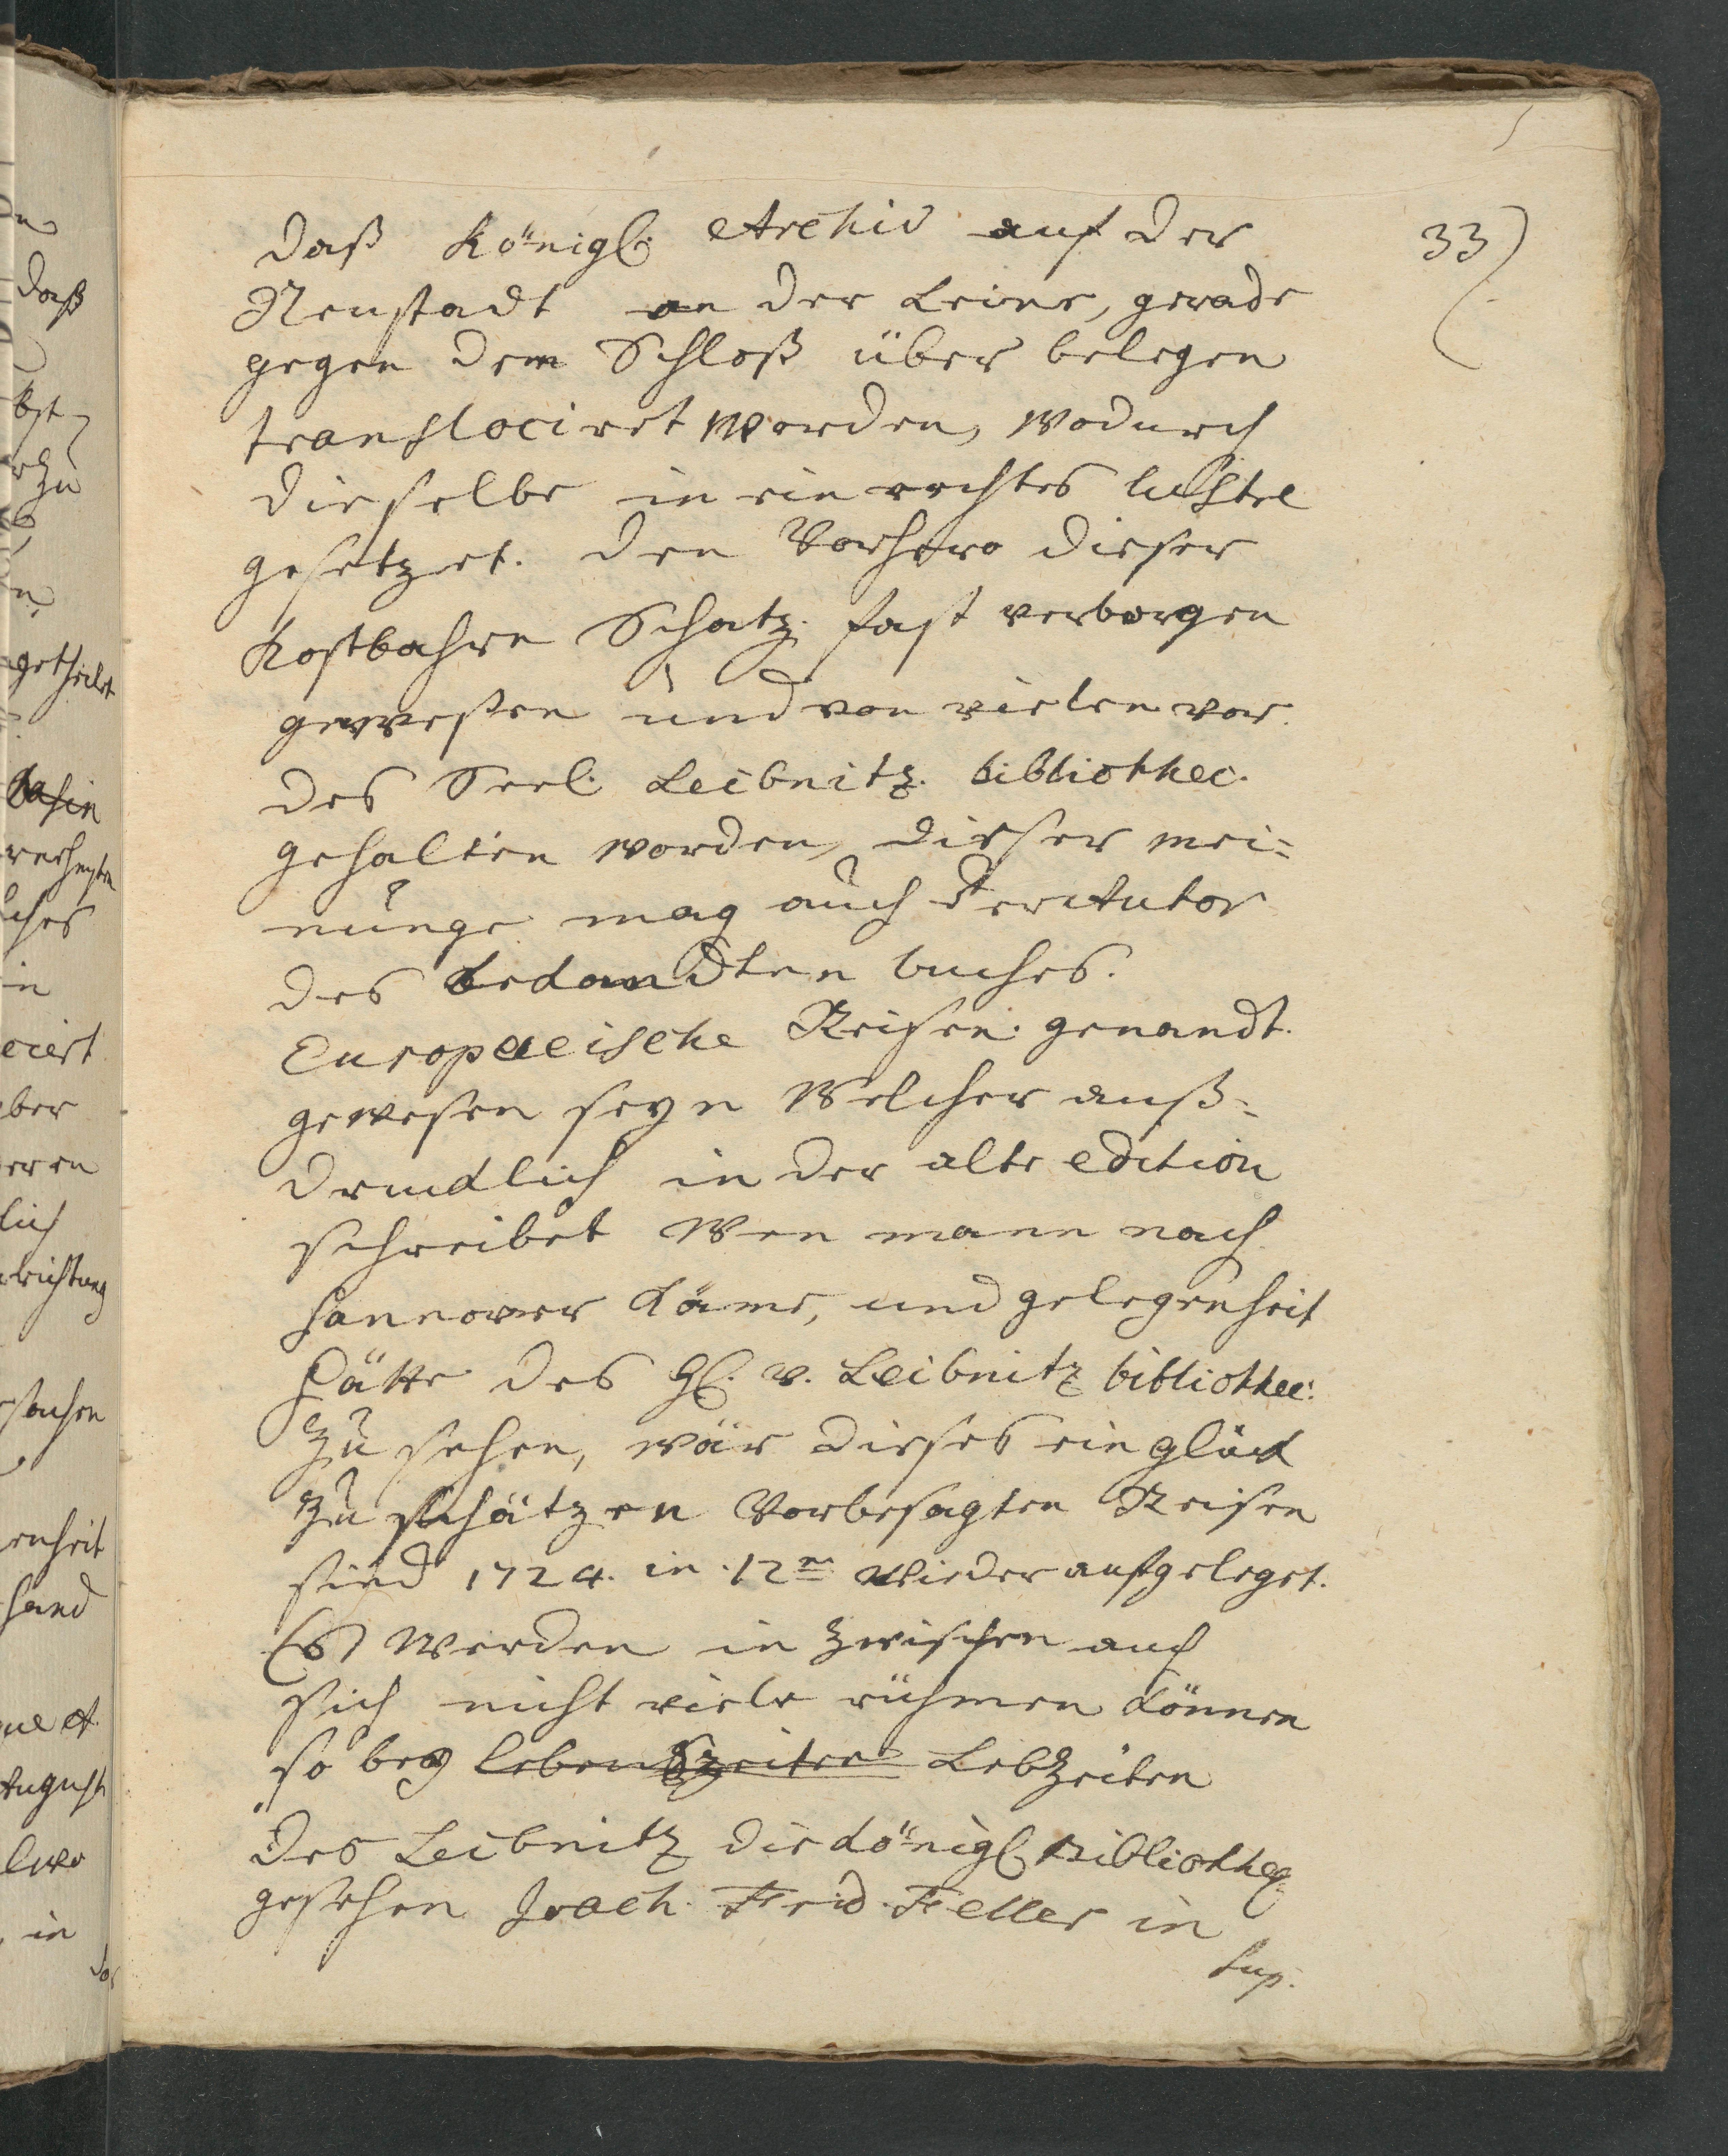 33)
daß Königl. Archiv auf der
Neustadt an der Leine, gerade
gegen dem Schloß über belegen
transflociret worden, wodurch
dieselbe in ein rechtes lustre
gesetzet. den Vorhero dieser
Kostbahre Schatz fast verborgen
geweßen und von vielen vor
des Seel. Leibnitz. bibliothec.
gehalten worden, dieser mei=
nunge mag auch der Autor
des bekandten buches.
Europaeische Reisen genandt.
gewesen seyn Welcher auß=
drucklich in der alte edition
schreibet Wen mann nach
Hannover käme, und gelegenheit
hätte des H. v. Leibnitz bibliothec:
zu sehen, wär dieses ein glück
zu schätzen Vorbesagten Reisen
sind 1724. in 12m wieder aufgeleget.
Es werden in zwischen auch
sich nicht viele rühmen können
so bey lebenszeiten Lebzeiten
des Leibnitz die königl. Bibliotheq
gesehen Joach. Frid. Feller in
Sup.
daß
bst
zu
getheilet
ches
in
ciert
ber
lich
richtung
enheit
hand
August
in